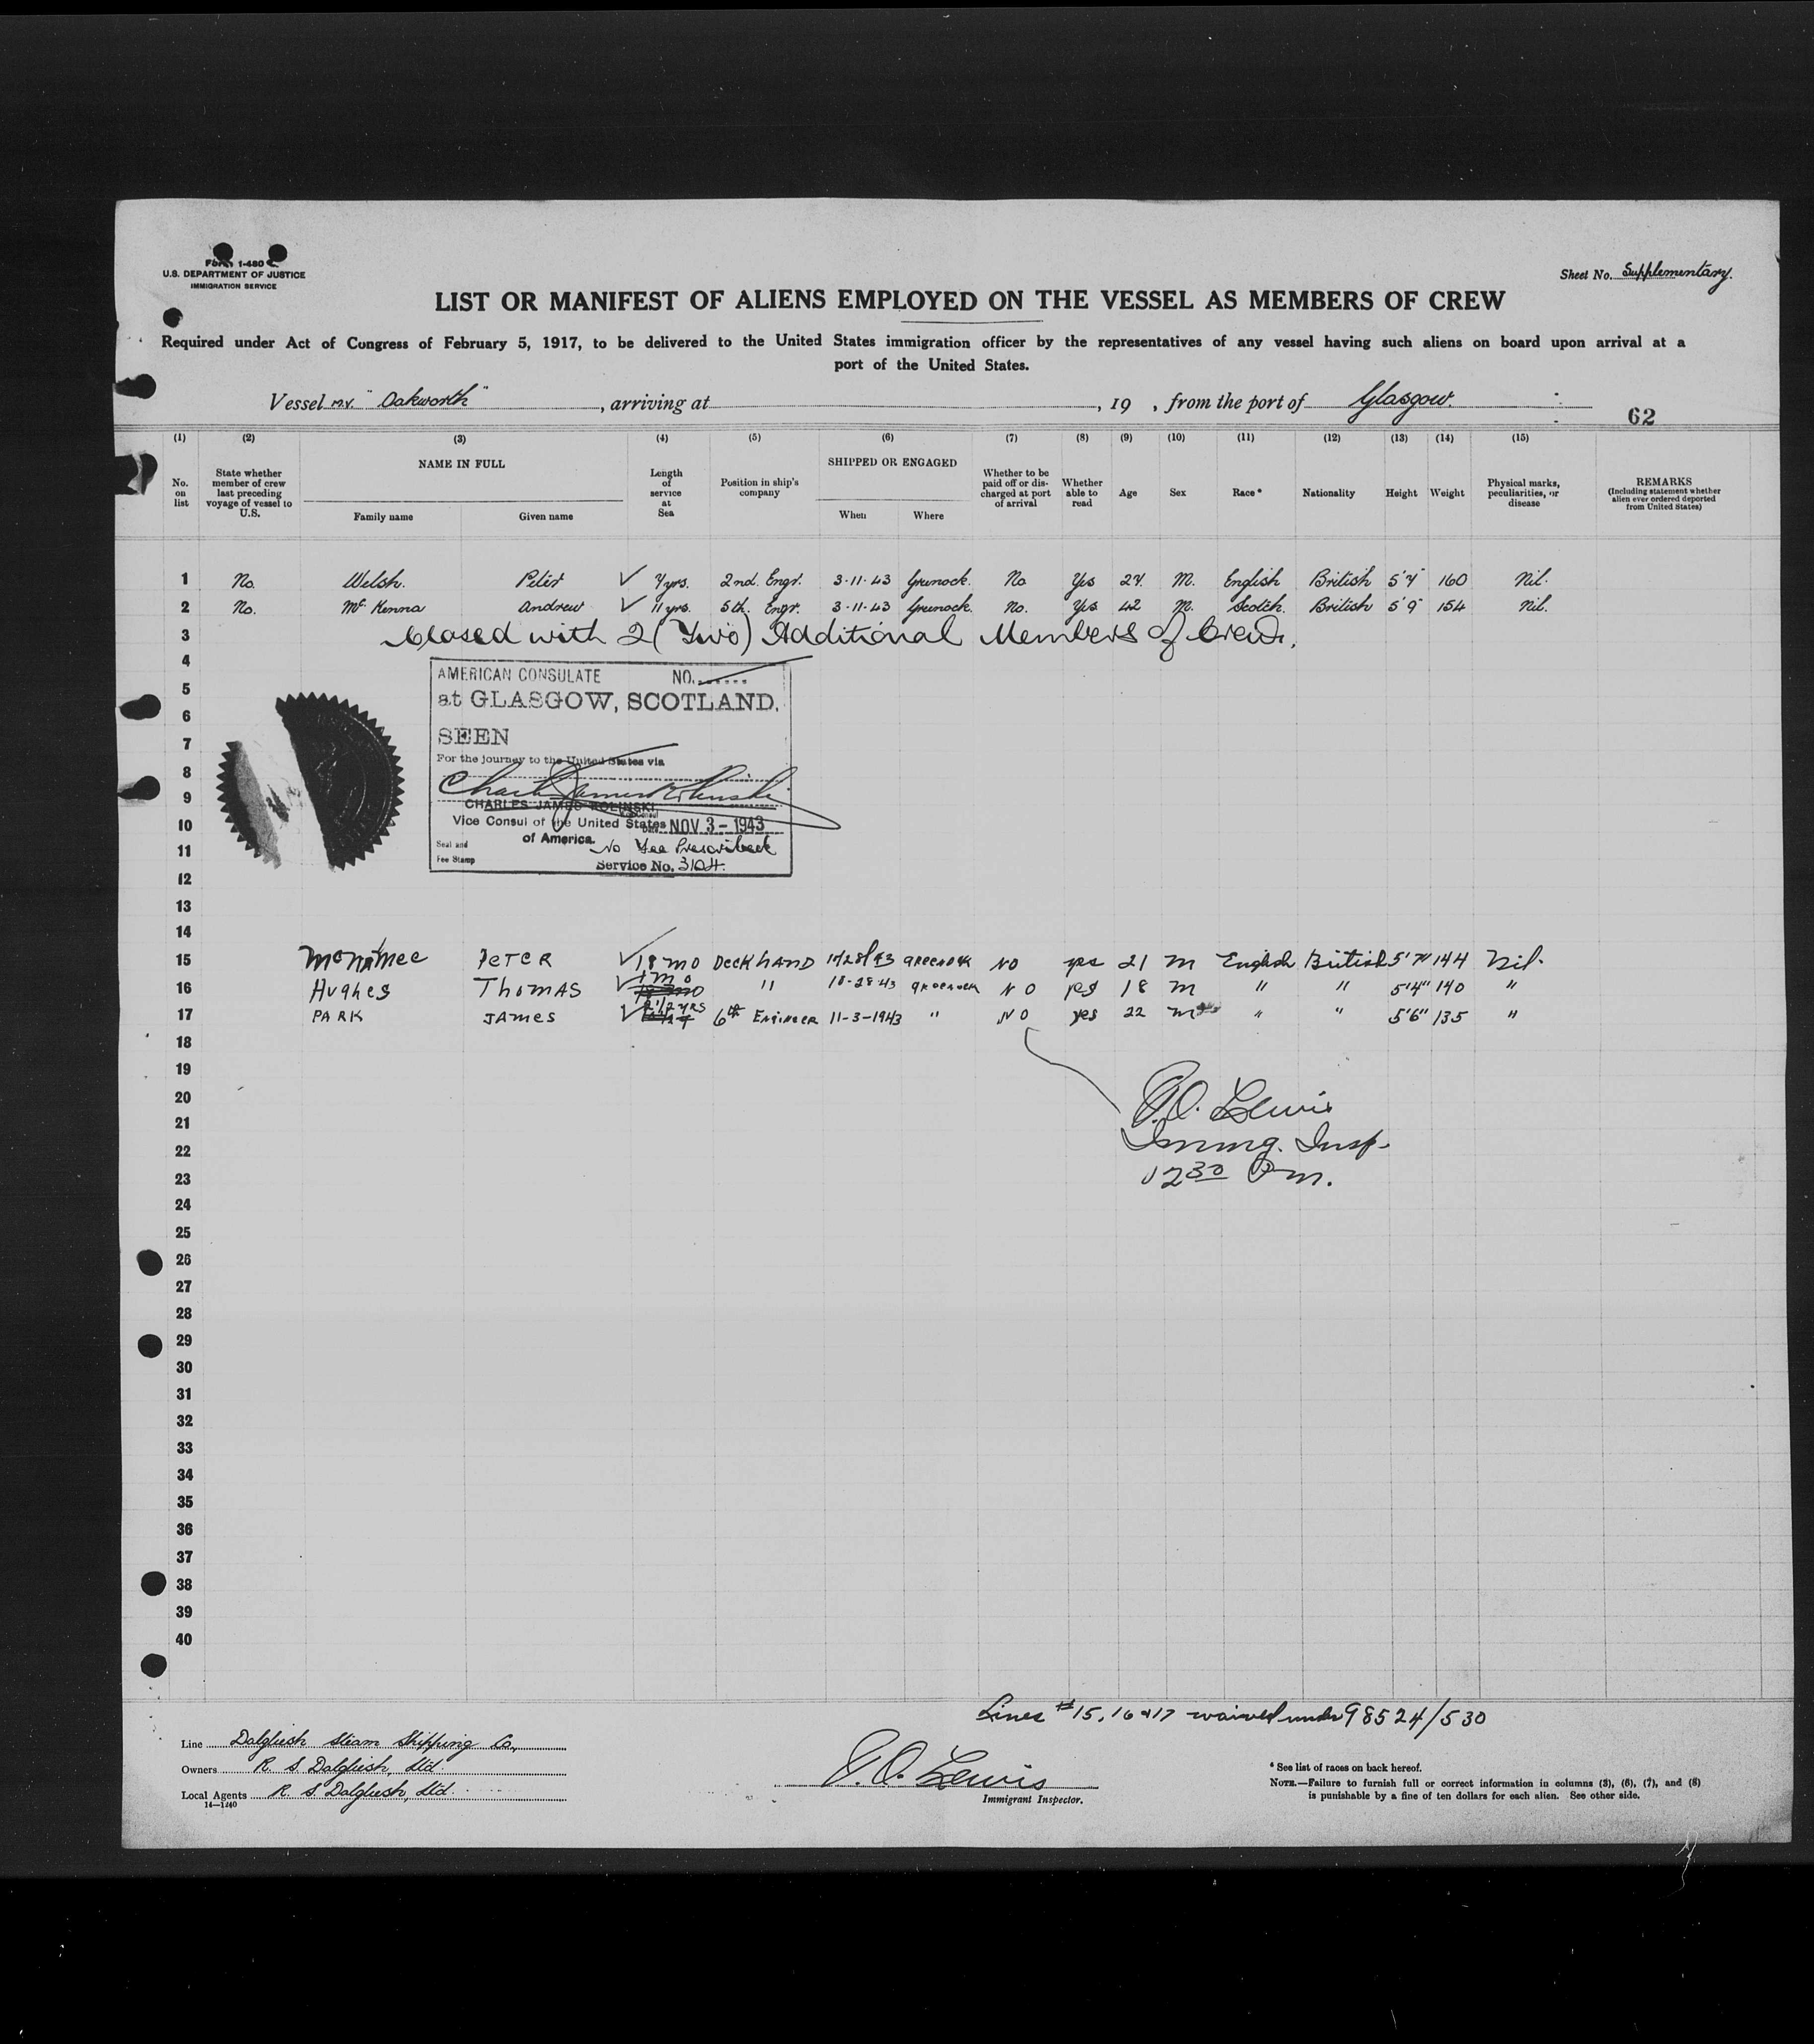 Form I-480
U.S. DEPARTMENT OF JUSTICE
IMMIGRATION SERVICE
Sheet No. Supplementary.
LIST OR MANIFEST OF ALIENS EMPLOYED ON THE VESSEL AS MEMBERS OF CREW
Required under Act of Congress of February 5, 1917, to be delivered to the United States immigration officer by the representatives of any vessel having such aliens on board upon arrival at a
port of the United States.
Vessel M.V. "Oakworth", arriving at , 19 , from the port of Glasgow.
62
(1) (2) (3) (4) (5) (6) (7) (8) (9) (10) (11) (12) (13) (14) (15)
No. on list State whether member of crew last preceding voyage of vessel to U.S. NAME IN FULL Family name Given name Length of service at Sea Position in ship's company SHIPPED OR ENGAGED When Where Whether to be paid off or discharged at port of arrival Whether able to read Age Sex Race* Nationality Height Weight Physical marks, peculiarities, or disease REMARKS (Including statement whether alien ever ordered deported from United States)
1 No. Welsh. Peter ✓ yrs. 2nd. Engr. 3-11-43 Greenock. No Yes M. English British 160 Nil.
2 No. McKenna Andrew ✓ 11 yrs. 5th. Engr. 3-11-43 Greenock. No. Yes 42 M. Scotch. British 5'9" 154 Nil.
3 Closed with 2 (Two) Additional Members of Crew.
4
AMERICAN CONSULATE NO.
5
at GLASGOW, SCOTLAND.
6
SEEN
7
For the journey to the United States via
8
9
CHARLES JAMES ROLINSKI
10
Vice Consul of the United States NOV 3 - 1943
of America.
11
No Fee Prescribed
Seal and
Fee Stamp
Service No. 3104.
12
13
14
15 McNamee Peter ✓ 18 mo Deckhand 10/28/43 Greenock No yes 21 M English British 5'7" 144 Nil.
16 Hughes Thomas ✓ mo " 10-28-43 Greenock No yes 18 M " " 5'4" 140 "
17 PARK James ✓ 2 1/2 yrs 6th Engineer 11-3-1943 " No yes 22 M " " 5'6" 135 "
18
19
20
Lewis
21
Immig. Insp.
22
12 30 P.m.
23
24
25
26
27
28
29
30
31
32
33
34
35
36
37
38
39
40
Lines #15, 16 & 17 waived under 98524/530
Line Dalgliesh Steam Shipping Co,
Owners R. S. Dalgliesh, Ltd.
Local Agents R. S. Dalgliesh, Ltd.
14—1240
Lewis
Immigrant Inspector.
* See list of races on back hereof.
NOTE.—Failure to furnish full or correct information in columns (3), (6), (7), and (8)
is punishable by a fine of ten dollars for each alien. See other side.